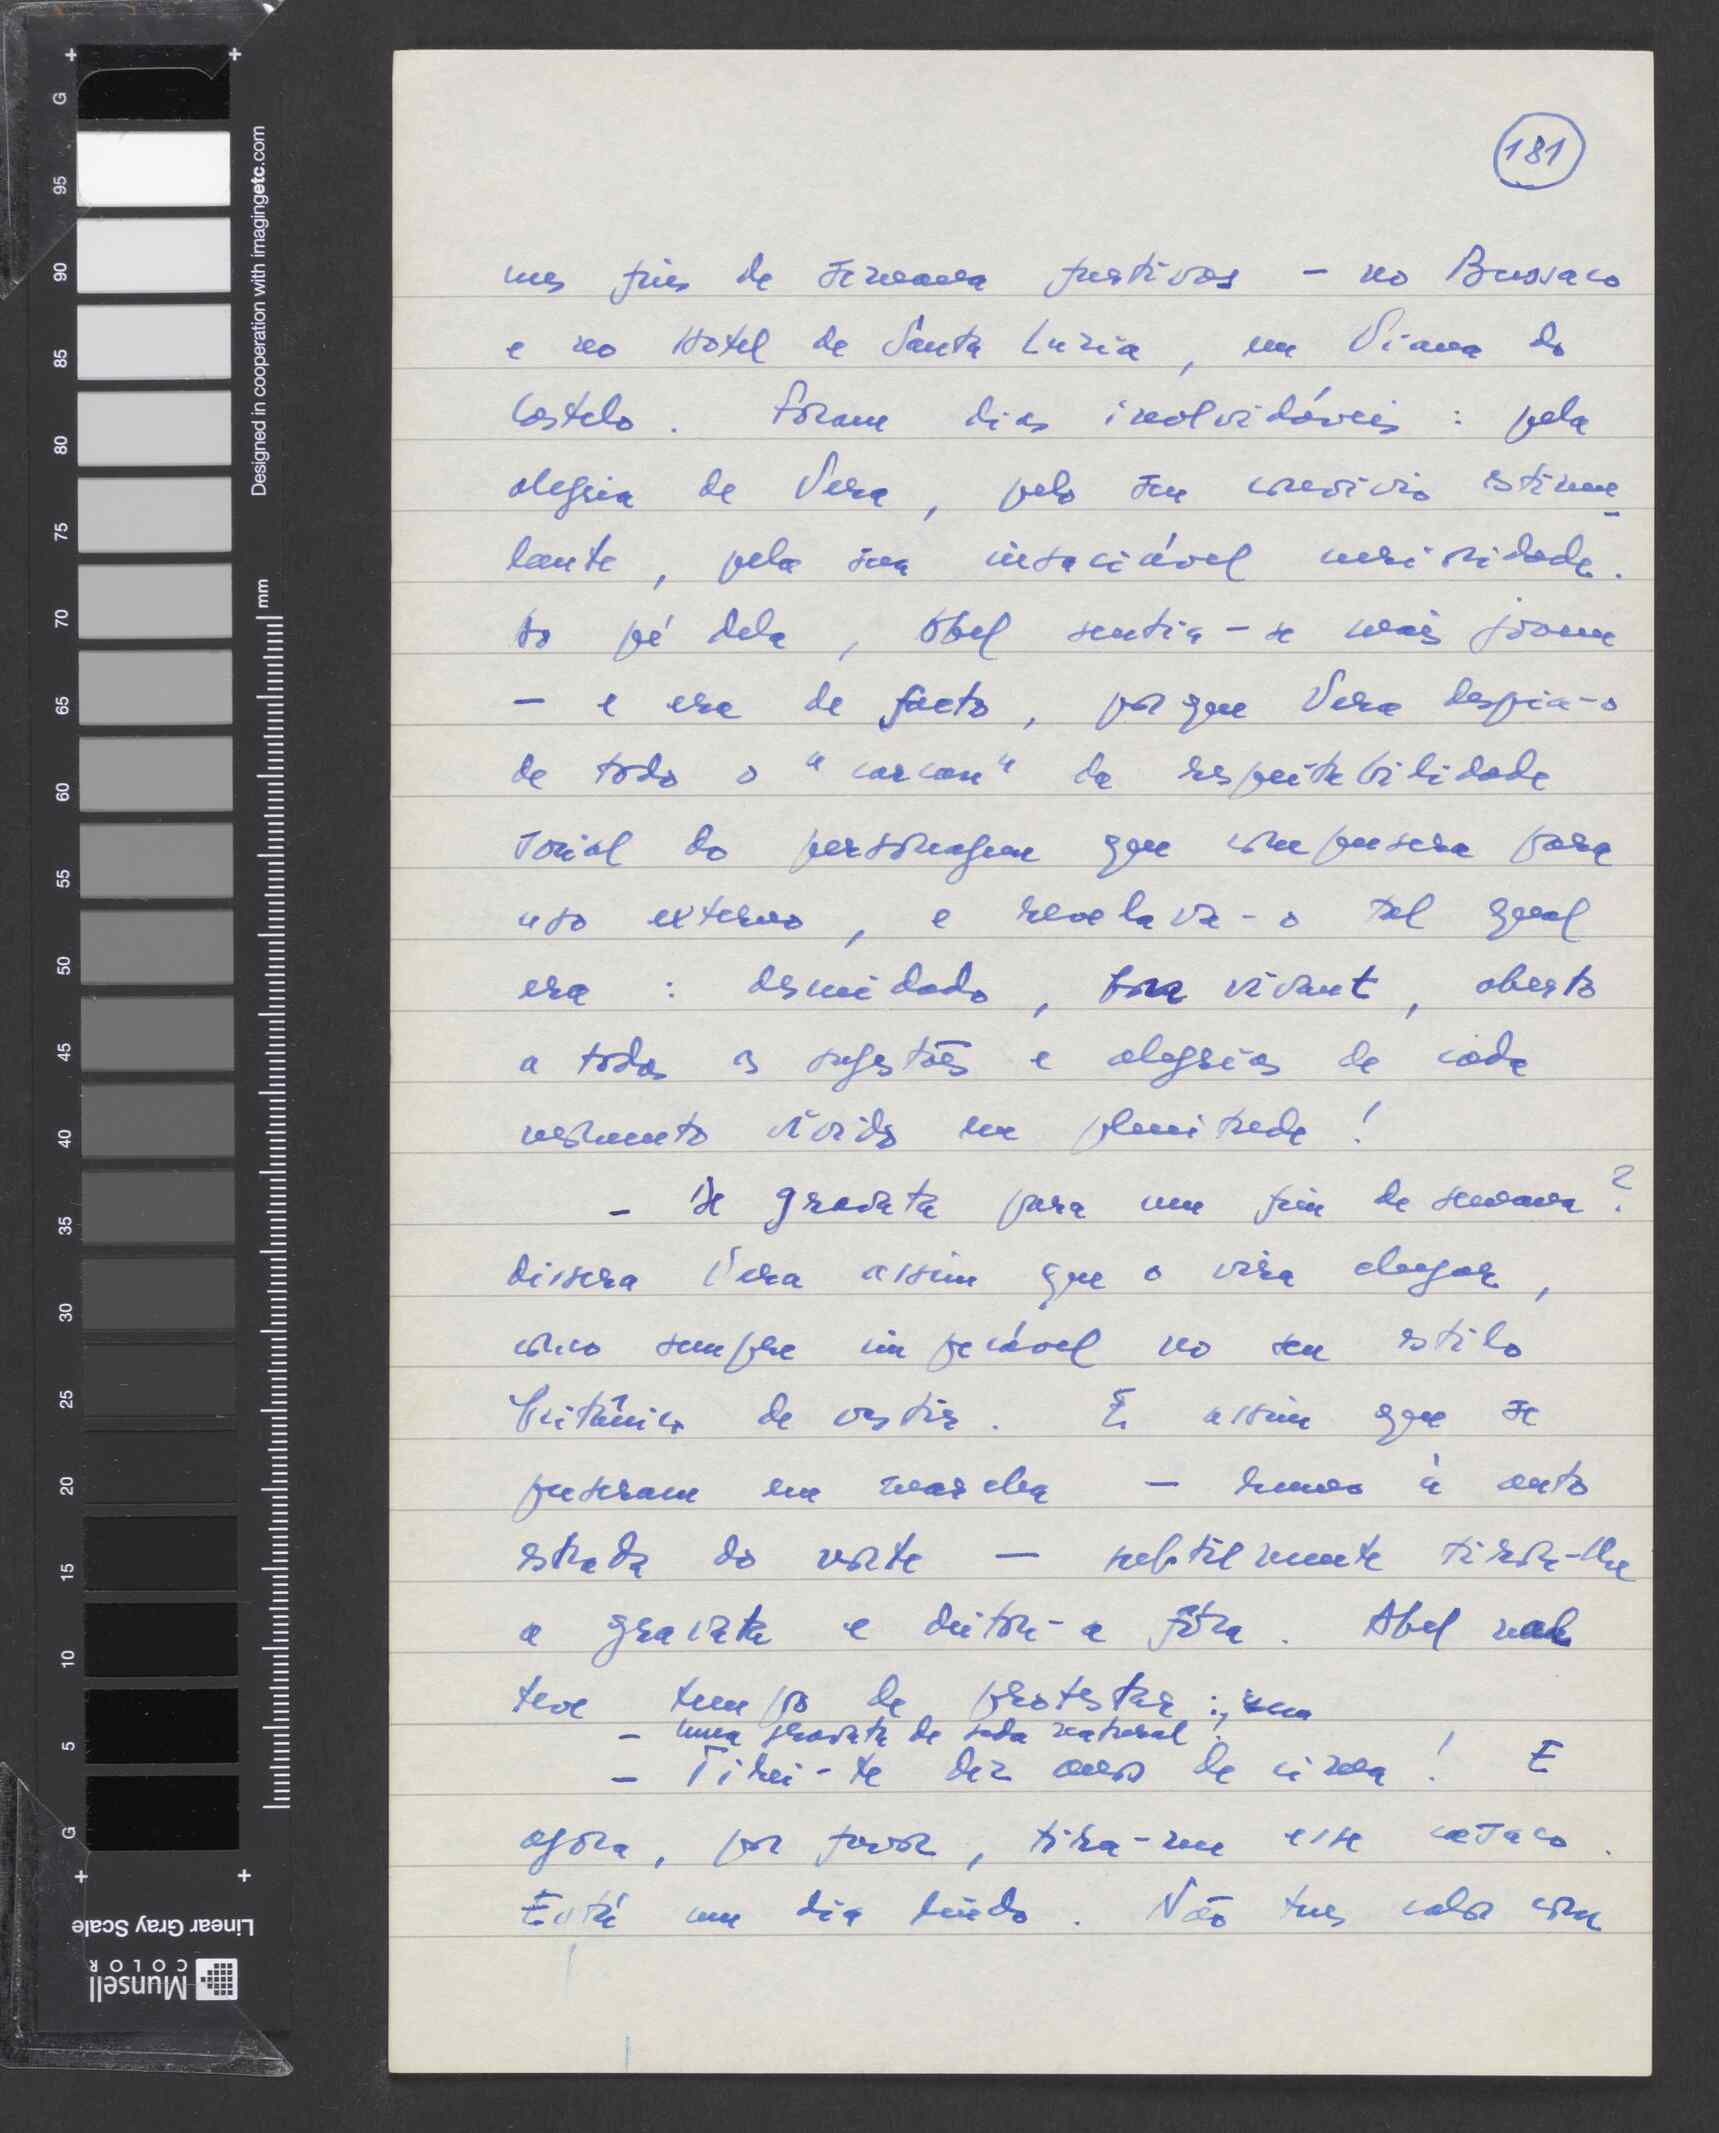 181
uns fins de semana furtivos - no Bussaco
e no Hotel de Santa Luzia, em Viana do
Castelo. Foram dias inolvidáveis: pela
alegria de Vera, pelo seu convívio estimu-
lante, pela sua insaciável curiosidade.
Ao pé dela, Abel sentia-se mais jovem
- e era de facto, porque Vera despia-o
de todo o "carcan" da respeitabilidade
social do personagem que compusera para
uso externo, e revelava-o tal qual
era: descuidado, bon vivant, aberto
a todas as sugestões e alegrias de cada
momento vivido em plenitude!
- De gravata para um fim de semana?
dissera Vera assim que o vira chegar,
como sempre impecável no seu estilo
britânico de vestir. E assim que se
puseram em marcha - rumo à auto
estrada do norte - subtilmente tirou-lhe
a gravata e deitou-a fóra. Abel mal
teve tempo de protestar:
- uma gravata de seda natural!
- Tirei-te dez anos de cima! E
agora, por favor, tira-me esse casaco.
Está um dia lindo. Não tens calor com
G 95 90 85 80 75 70 65 60 55 50 45 40 35 30 25 20 15 10 5 G
Designed in cooperation with imagingetc.com
mm
Linear Gray Scale
Munsell
COLOR